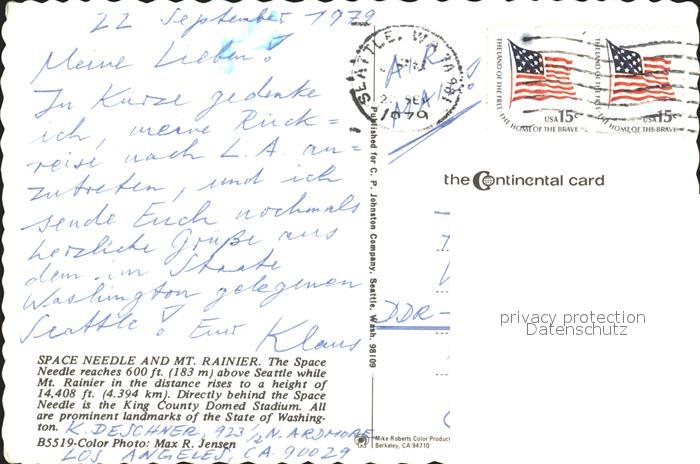 22 September 1979
Meine Lieben!
In Kürze gedenke
ich, meine Rück=
reise nach L.A. an=
zutreten, und ich
sende Euch nochmals
herzliche Grüße aus
dem im Staate
Washington gelegenen
Seattle! Eur Klaus
SPACE NEEDLE AND MT. RAINIER. The Space
Needle reaches 600 ft. (183 m) above Seattle while
Mt. Rainier in the distance rises to a height of
14,408 ft. (4.394 km). Directly behind the Space
Needle is the King County Domed Stadium. All
are prominent landmarks of the State of Washing-
ton.
K. DESCHNER, 923 1/2 N. ARDMORE
B5519-Color Photo: Max R. Jensen
LOS ANGELES, CA. 90029
Published for C. P. Johnston Company, Seattle, Wash. 98109
Mike Roberts Color Produc
Berkeley, CA 94710
SEATTLE, WA 981
SEP
1979
AIR
MAIL
THE LAND OF THE FREE
USA 15c
THE HOME OF THE BRAVE
THE LAND OF THE FREE
USA 15c
THE HOME OF THE BRAVE
the Continental card
DDR-
privacy protection
Datenschutz